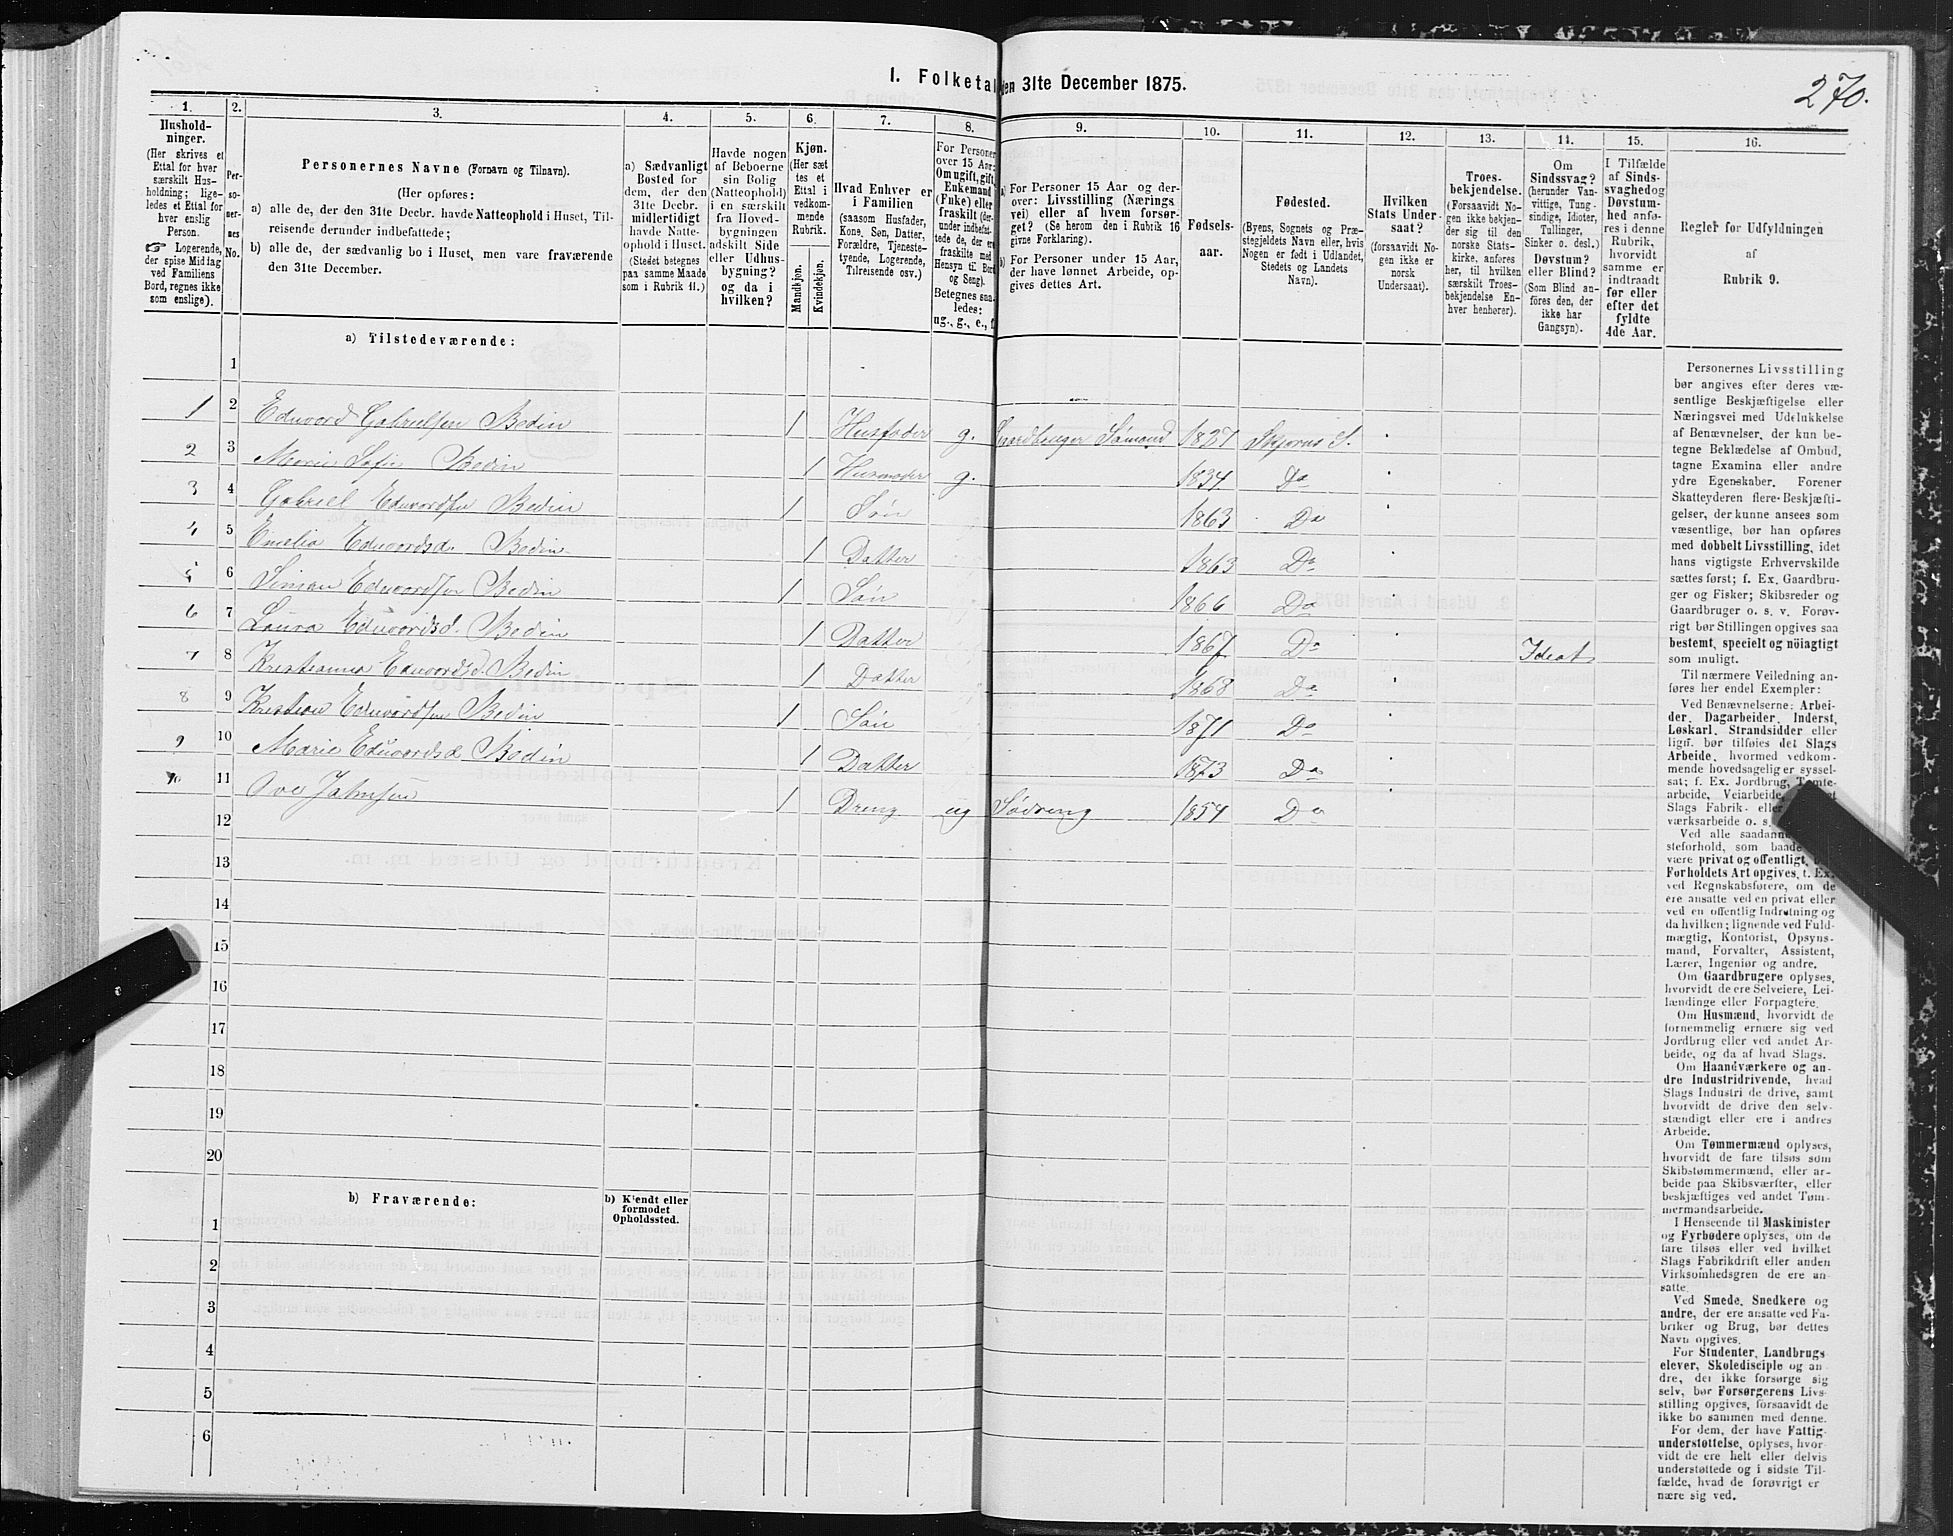 I. Folketal den 31te December 1875.
270.
1.
Hushold-
ninger.
(Her skrives et
Ettal for hver
særskilt Hus-
holdning; lige-
ledes et Ettal for
hver enslig
Person.
☞ Logerende,
der spise Middag
ved Familiens
Bord, regnes ikke
som enslige).
2.
Per-
so-
ner-
nes
No.
3.
Personernes Navne (Fornavn og Tilnavn).
(Her opføres:
a) alle de, der den 31te Decbr. havde Natteophold i Huset, Til-
reisende derunder indbefattede;
b) alle de, der sædvanlig bo i Huset, men vare fraværende
den 31te December.
4.
a) Sædvanligt
Bosted for
dem, der den
31te Decbr.
midlertidigt
havde Natte-
ophold i Huset.
(Stedet betegnes
paa samme Maade
som i Rubrik 11.)
5.
Havde nogen
af Beboerne
sin Bolig
(Natteophold)
i en særskilt
fra Hoved-
bygningen
adskilt Side
eller Udhus-
bygning?
og da i
hvilken?
6.
Kjøn.
(Her sæt
tes et
Ettal i
vedkom-
mende
Rubrik.
Mandkjøn.
Kvindekjøn.
7.
Hvad Enhver er
i Familien
(saasom Husfader,
Kone, Søn, Datter,
Forældre, Tjeneste-
tyende, Logerende,
Tilreisende osv.)
8.
For Personer
over 15 Aar:
Om ugift, gift,
Enkemand
(Fuke) eller
fraskilt (der-
under indbefat-
tede de, der ere
fraskilte med
Hensyn til Bord
og Seng).
Betegnes saa-
ledes:
ug., g., e., f.
9.
a) For Personer 15 Aar og der-
over: Livsstilling (Nærings
vei) eller af hvem forsør-
get? (Se herom den i Rubrik 16
givne Forklaring).
b) For Personer under 15 Aar,
der have lønnet Arbeide, op-
gives dettes Art.
10.
Fødsels-
aar.
11.
Fødested.
(Byens, Sognets og Præ-
stegjeldets Navn eller, hvis
Nogen er født i Udlandet,
Stedets og Landets
Navn).
12.
Hvilken
Stats Under-
saat?
(forsaavidt No-
gen ikke er
norsk
Undersaat).
13.
Troes-
bekjendelse.
(Forsaavidt No-
gen ikke bekjen-
der sig til den
norske Stats-
kirke, anføres
her, til hvilken
særskilt Troes-
bekjendelse En-
hver henhører).
14.
Om
Sindssvag?
(herunder Van-
vittige, Tung-
sindige, Idioter,
Tullinger,
Sinker o. desl.)
Døvstum?
eller Blind?
(Som Blind an-
føres den, der
ikke har
Gangsyn).
15.
I Tilfælde
af Sinds-
svaghed og
Døvstum-
hed anfø-
res i denne
Rubrik,
hvorvidt
samme er
indtraadt
før eller
efter det
fyldte
4de Aar.
16.
Regler for Udfyldningen
af
Rubrik 9.
a) Tilstedeværende:
1
1 2 Eduvard Gabrielsen Bedin 1 Husfader g. Gaardbruger Sømand 1827 Skjørns S.
2 3 Marie Sofie Bedin 1 Husmoder g. 1834 Do
3 4 Gabriel Eduvardsen Bedin 1 Søn 1863 Do
4 5 Emelia Eduvardsd. Bedin 1 Datter 1863 Do
5 6 Simon Eduvardsen Bedin 1 Søn 1866 Do
6 7 Laura Eduvardsd. Bedin 1 Datter 1867 Do Ideot
7 8 Kristianna Eduvardsd. Bedin 1 Datter 1868 Do
8 9 Kristian Eduvardsen Bedin 1 Søn 1871 Do
9 10 Marie Eduvardsd Bedin 1 Datter 1873 Do
10 11 Ove Jahnsen 1 Dreng ug Sødreng 1854 Do
12
13
14
15
16
17
18
19
20
b) Fraværende:
b) Kjendt eller
formodet
Opholdssted.
1
2
3
4
5
6
Personernes Livsstilling
bør angives efter deres væ-
sentlige Beskjæftigelse eller
Næringsvei med Udelukkelse
af Benævnelser, der kun be-
tegne Beklædelse af Ombud,
tagne Examina eller andre
ydre Egenskaber. Forener
Skatteyderen flere Beskjæfti-
gelser, der kunne ansees som
væsentlige, bør han opføres
med dobbelt Livsstilling, idet
hans vigtigste Erhvervskilde
sættes først; f. Ex. Gaardbru-
ger og Fisker; Skibsreder og
Gaardbruger o. s. v. Forøv-
rigt bør Stillingen opgives saa
bestemt, specielt og nöiagtigt
som muligt.
Til nærmere Veiledning an-
føres her endel Exempler:
Ved Benævnelserne: Arbei-
der, Dagarbeider, Inderst,
Løskarl, Strandsidder eller
lign. bør tilføies det Slags
Arbeide, hvormed vedkom-
mende hovedsagelig er syssel-
sat; f. Ex. Jordbrug, Tomte-
arbeide, Veiarbeide,
Slags Fabrik- eller
værksarbeide o. s.
Ved alle saadanne
steforhold, som baade
være privat og offentligt,
Forholdets Art opgives, t. Ex.
ved Regnskabsførere, om de
ere ansatte ved en privat eller
ved en offentlig Indretning og
da hvilken; lignende ved Fuld-
mægtig, Kontorist, Opsyns-
mand, Forvalter, Assistent,
Lærer, Ingeniør og andre.
Om Gaardbrugere oplyses,
hvorvidt de ere Selveiere, Lei-
lændinge eller Forpagtere.
Om Husmænd, hvorvidt de
fornemmelig ernære sig ved
Jordbrug eller ved andet Ar-
beide, og da af hvad Slags.
Om Haandværkere og an-
dre Industridrivende, hvad
Slags Industri de drive, samt
hvorvidt de drive den selv-
stændigt eller ere i andres
Arbeide.
Om Tømmermænd oplyses,
hvorvidt de fare tilsøs som
Skibstømmermænd, eller ar-
beide paa Skibsværfter, eller
beskjæftiges ved andet Tøm-
mermandsarbeide.
I Henseende til Maskinister
og Fyrbødere oplyses, om de
fare tilsøs eller ved hvilket
Slags Fabrikdrift eller anden
Virksomhedsgren de ere an-
satte.
Ved Smede, Snedkere og
andre, der ere ansatte ved Fa-
briker og Brug, bør dettes
Navn opgives.
For Studenter, Landbrugs
elever, Skoledisciple og an
dre, der ikke forsørge sig
selv, bør Forsørgerens Livs-
stilling opgives, forsaavidt de
ikke bo sammen med denne.
For dem, der have Fattig-
understøttelse, oplyses, hvor-
vidt de ere helt eller delvis
understøttede og i sidste Til-
fælde, hvad de forøvrigt er
nære sig ved.